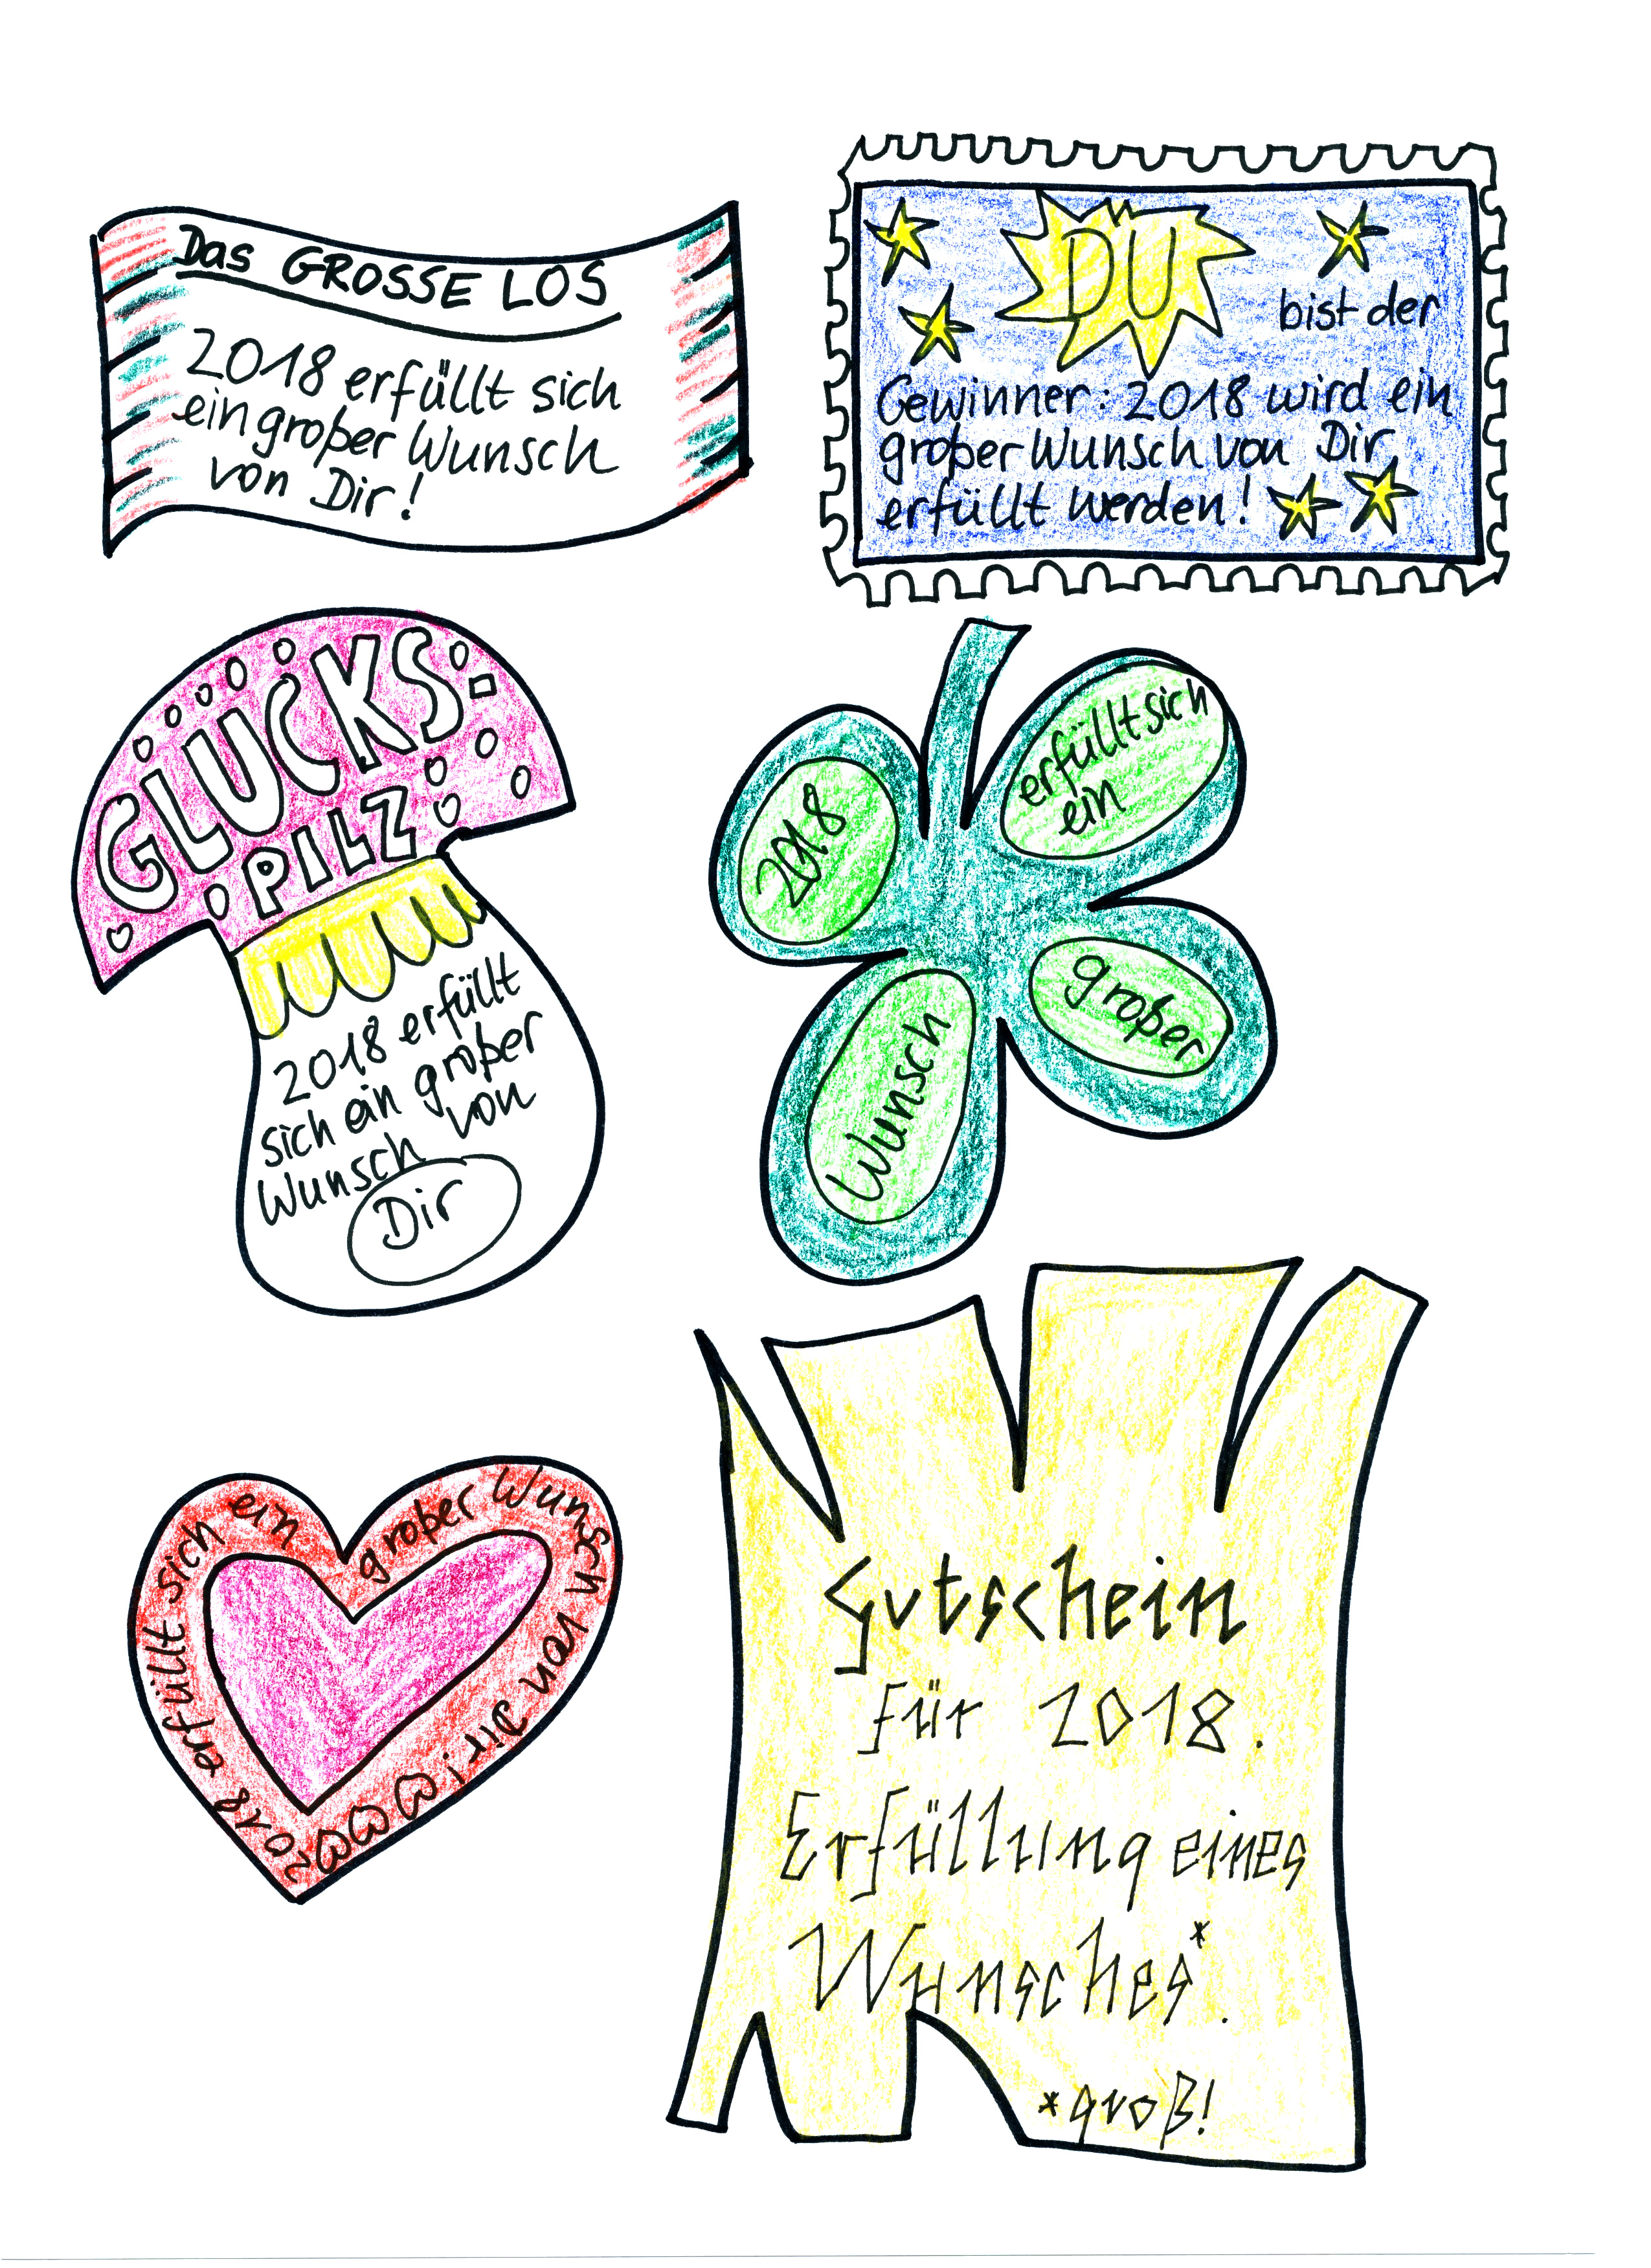 Das GROSSE LOS
2018 erfüllt sich
ein großer Wunsch
von Dir!
DU
bist der
Gewinner: 2018 wird ein
großer Wunsch von Dir
erfüllt werden!
GLÜCKS
PILZ
2018 erfüllt
sich ein großer
Wunsch von
Dir
2018
erfüllt sich
ein
großer
Wunsch
2018 erfüllt sich ein großer Wunsch von Dir!
Gutschein
für 2018.
Erfüllung eines
Wunsches*.
*groß!